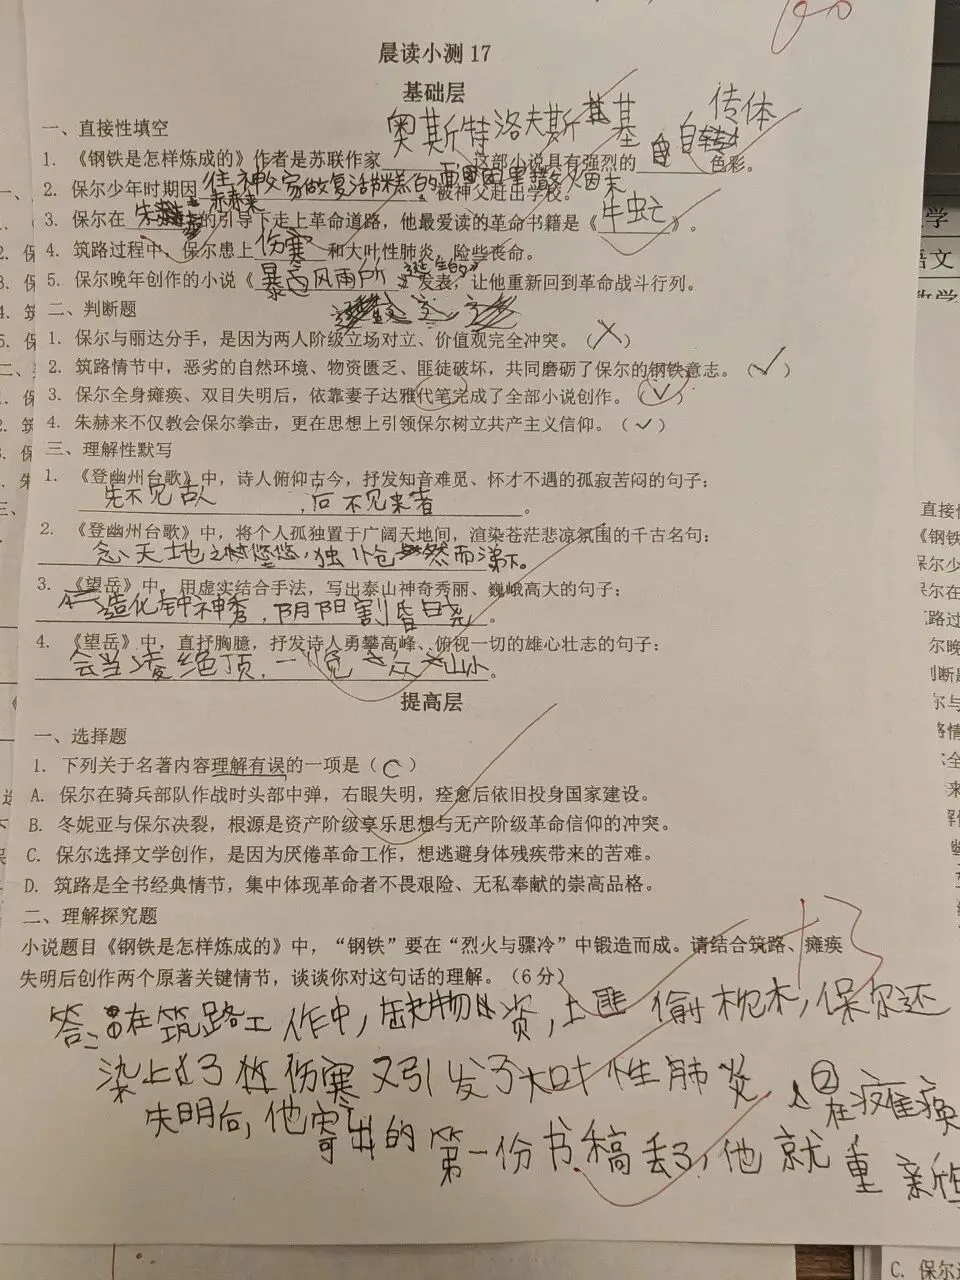 晨读小测 17
基础层
一、直接性填空
奥斯特洛夫斯基 自传体
1. 《钢铁是怎样炼成的》作者是苏联作家 ,这部小说具有强烈的 色彩。
2. 保尔少年时期因往神父家做复活节糕的面团里撒烟末被神父赶出学校。
3. 保尔在朱赫来的引导下走上革命道路，他最爱读的革命书籍是《牛虻》。
4. 筑路过程中，保尔患上伤寒和大叶性肺炎，险些丧命。
5. 保尔晚年创作的小说《暴风雨所诞生的》发表，让他重新回到革命战斗行列。
二、判断题
1. 保尔与丽达分手，是因为两人阶级立场对立、价值观完全冲突。（×）
2. 筑路情节中，恶劣的自然环境、物资匮乏、匪徒破坏，共同磨砺了保尔的钢铁意志。（✓）
3. 保尔全身瘫痪、双目失明后，依靠妻子达雅代笔完成了全部小说创作。（✓）
4. 朱赫来不仅教会保尔拳击，更在思想上引领保尔树立共产主义信仰。（✓）
三、理解性默写
1. 《登幽州台歌》中，诗人俯仰古今，抒发知音难觅、怀才不遇的孤寂苦闷的句子：
先不见古人，后不见来者。
2. 《登幽州台歌》中，将个人孤独置于广阔天地间，渲染苍茫悲凉氛围的千古名句：
念天地之悠悠，独怆然而涕下。
3. 《望岳》中，用虚实结合手法，写出泰山神奇秀丽、巍峨高大的句子：
造化钟神秀，阴阳割昏晓。
4. 《望岳》中，直抒胸臆，抒发诗人勇攀高峰、俯视一切的雄心壮志的句子：
会当凌绝顶，一览众山小。
提高层
一、选择题
1. 下列关于名著内容理解有误的一项是（C）
A. 保尔在骑兵部队作战时头部中弹，右眼失明，痊愈后依旧投身国家建设。
B. 冬妮亚与保尔决裂，根源是资产阶级享乐思想与无产阶级革命信仰的冲突。
C. 保尔选择文学创作，是因为厌倦革命工作，想逃避身体残疾带来的苦难。
D. 筑路是全书经典情节，集中体现革命者不畏艰险、无私奉献的崇高品格。
二、理解探究题
小说题目《钢铁是怎样炼成的》中，“钢铁”要在“烈火与骤冷”中锻造而成。请结合筑路、瘫痪
失明后创作两个原著关键情节，谈谈你对这句话的理解。（6 分）
答：①在筑路工作中，缺物资，土匪偷枕木，保尔还
染上了伤寒又引发了大叶性肺炎。②在瘫痪
失明后，他寄出的第一份书稿丢了，他就重新